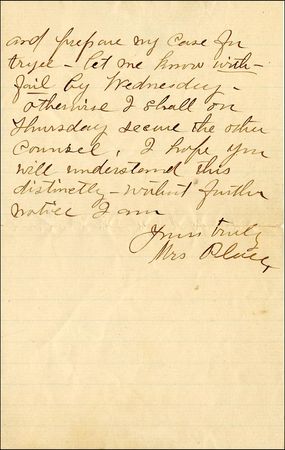 and prepare my case for
tryel - let me know with-
fail by Wednesday -
otherwise I shall on
Thursday secure the other
Counsel. I hope you
will understand this
distinctly - without further
notice I am
Yours truly
Mrs Place